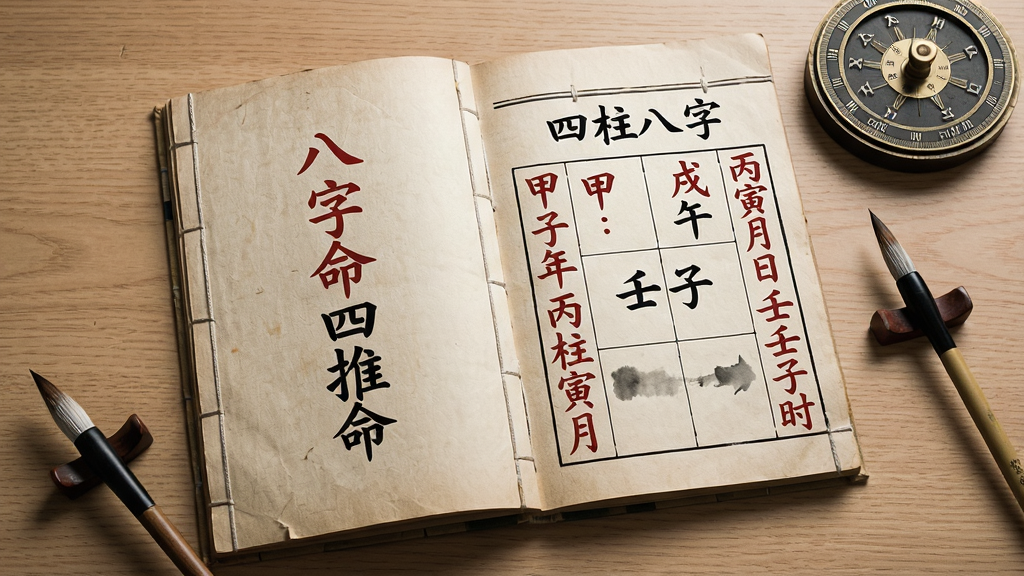 八字命四推命
四柱八字
甲子年丙柱寅月
甲：
戌午
壬子
丙寅月日壬壬子时